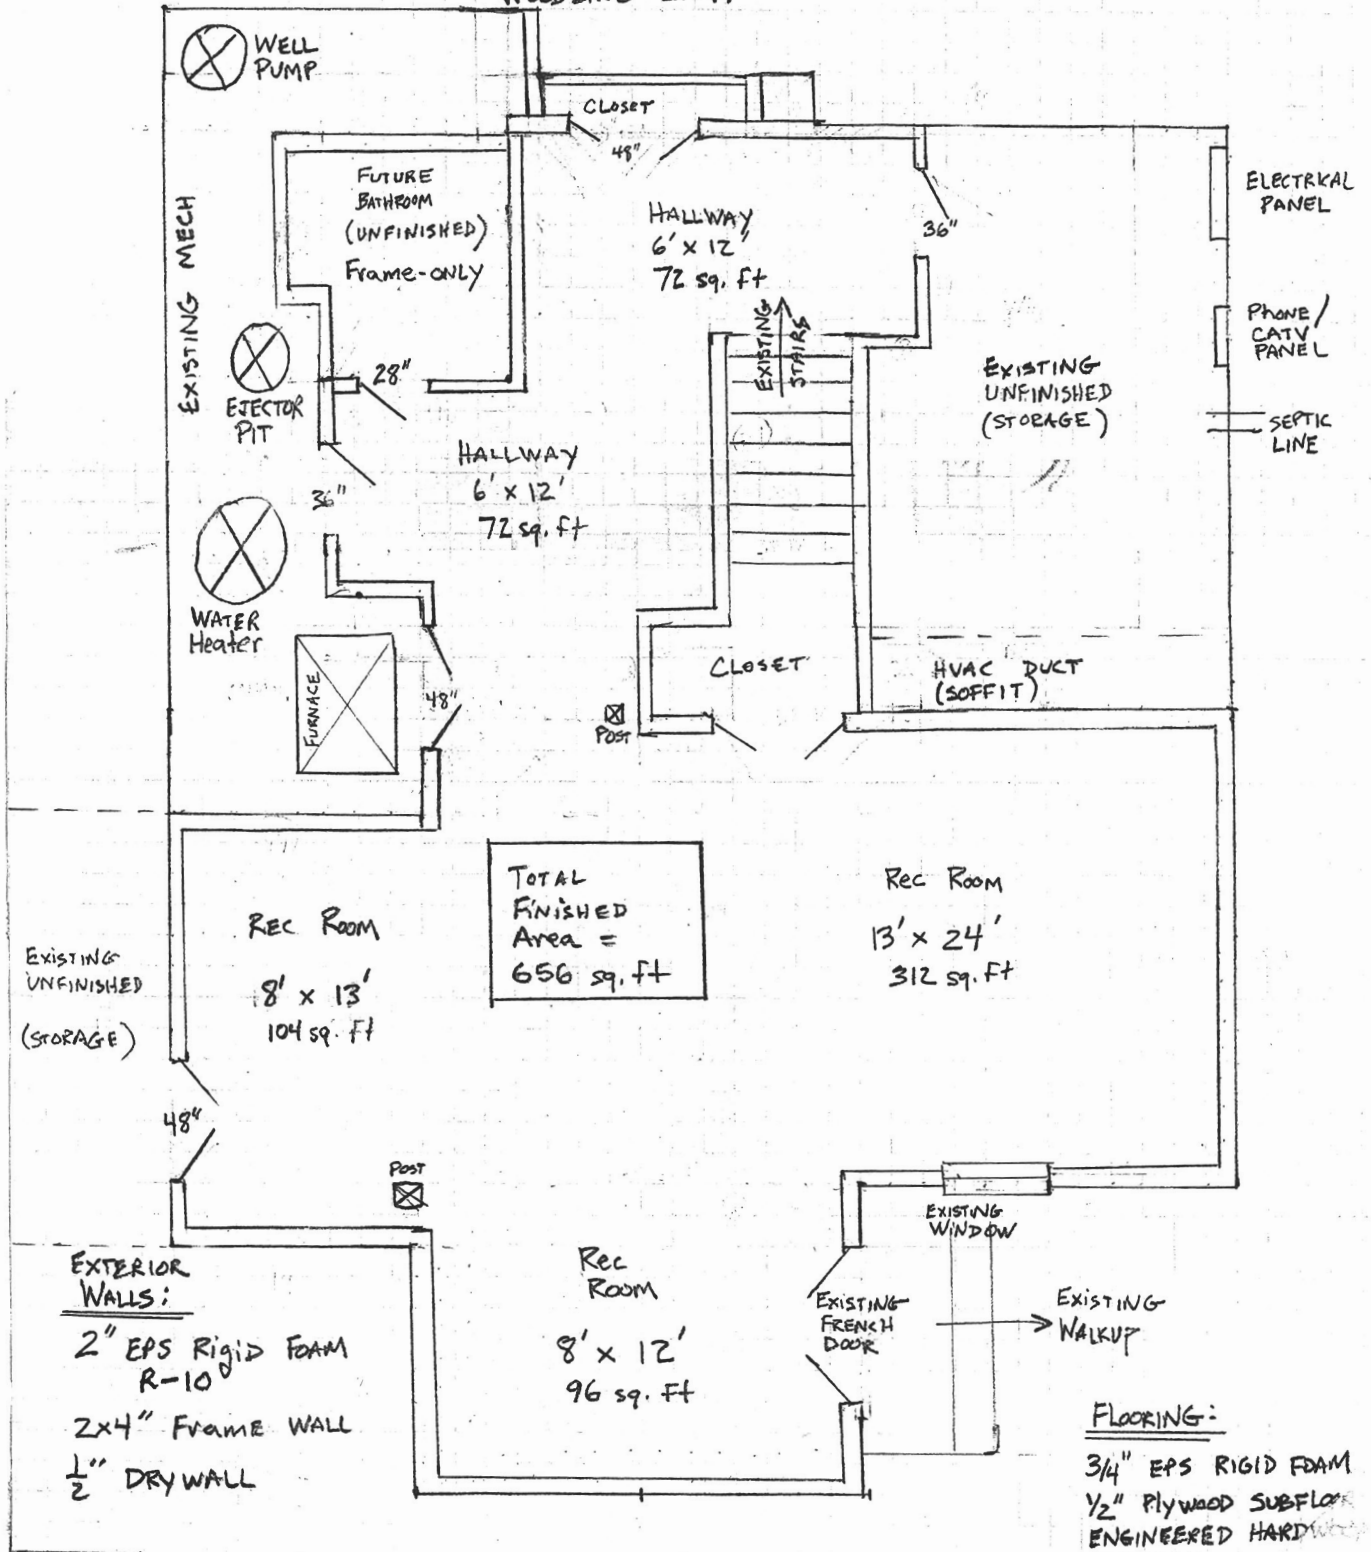 WELL
PUMP
CLOSET
48"
FUTURE
BATHROOM
(UNFINISHED)
Frame-ONLY
HALLWAY
6' x 12'
72 sq. ft
36"
ELECTRICAL
PANEL
EXISTING MECH
EXISTING
STAIRS
PHONE/
CATV
PANEL
EJECTOR
PIT
28"
EXISTING
UNFINISHED
(STORAGE)
SEPTIC
LINE
HALLWAY
6' x 12'
72 sq. ft
36"
WATER
Heater
FURNACE
48"
POST
CLOSET
HVAC DUCT
(SOFFIT)
TOTAL
FINISHED
Area =
656 sq. ft
Rec Room
13' x 24'
312 sq. ft
REC ROOM
8' x 13'
104 sq. ft
EXISTING
UNFINISHED
(STORAGE)
48"
POST
EXISTING
WINDOW
Rec
Room
8' x 12'
96 sq. ft
EXISTING
FRENCH
DOOR
EXISTING
WALKUP
EXTERIOR
WALLS:
2" EPS RigiD FOAM
R-10
2x4" Frame WALL
1/2" DRYWALL
FLOORING:
3/4" EPS RIGID FOAM
1/2" PlyWOOD SUBFLOOR
ENGINEERED HARDWOOD